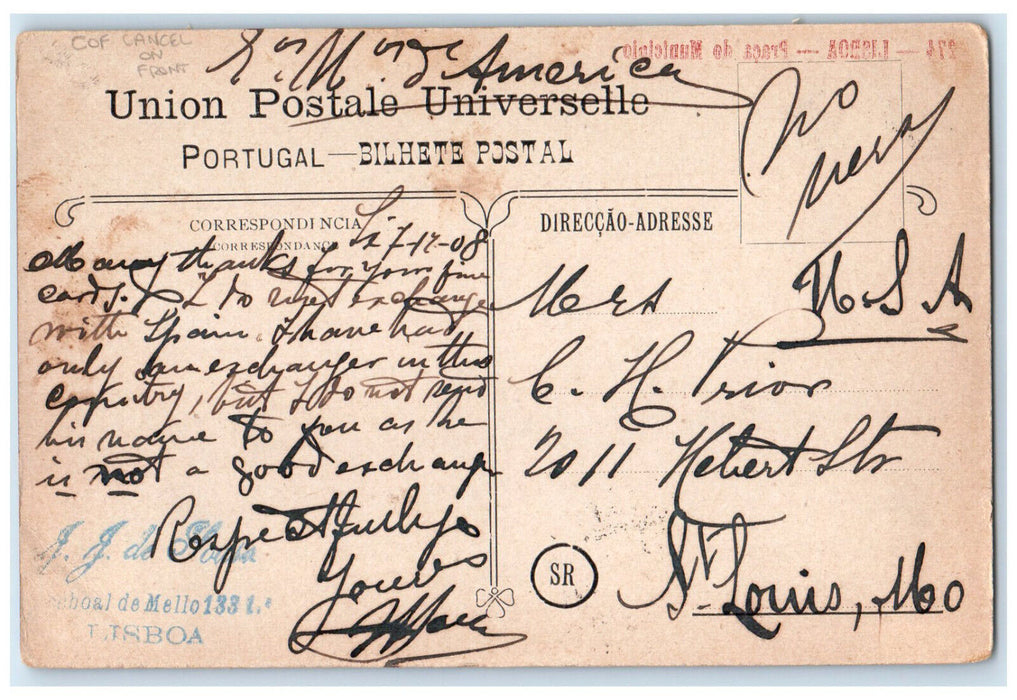 COF CANCEL
ON
FRONT
274 — LISBOA — Praça do Municipio
E.os U.os d'America
Union Postale Universelle
PORTUGAL—BILHETE POSTAL
No
verso
CORRESPONDENCIA
CORRESPONDANCE
DIRECÇÃO-ADRESSE
Lx 7-12-08
Many thanks for your fine
cards. I do not exchange
with Spain. I have had
only an exchanger in this
country, but I do not send
his name to you as he
is not a good exchanger
Respectfully
Yours
J. J. de Sousa
boal de Mello 133 1.º
LISBOA
SR
U.S.A
Mrs
C. H. Prior
2011 Hebert Str
St. Louis, Mo